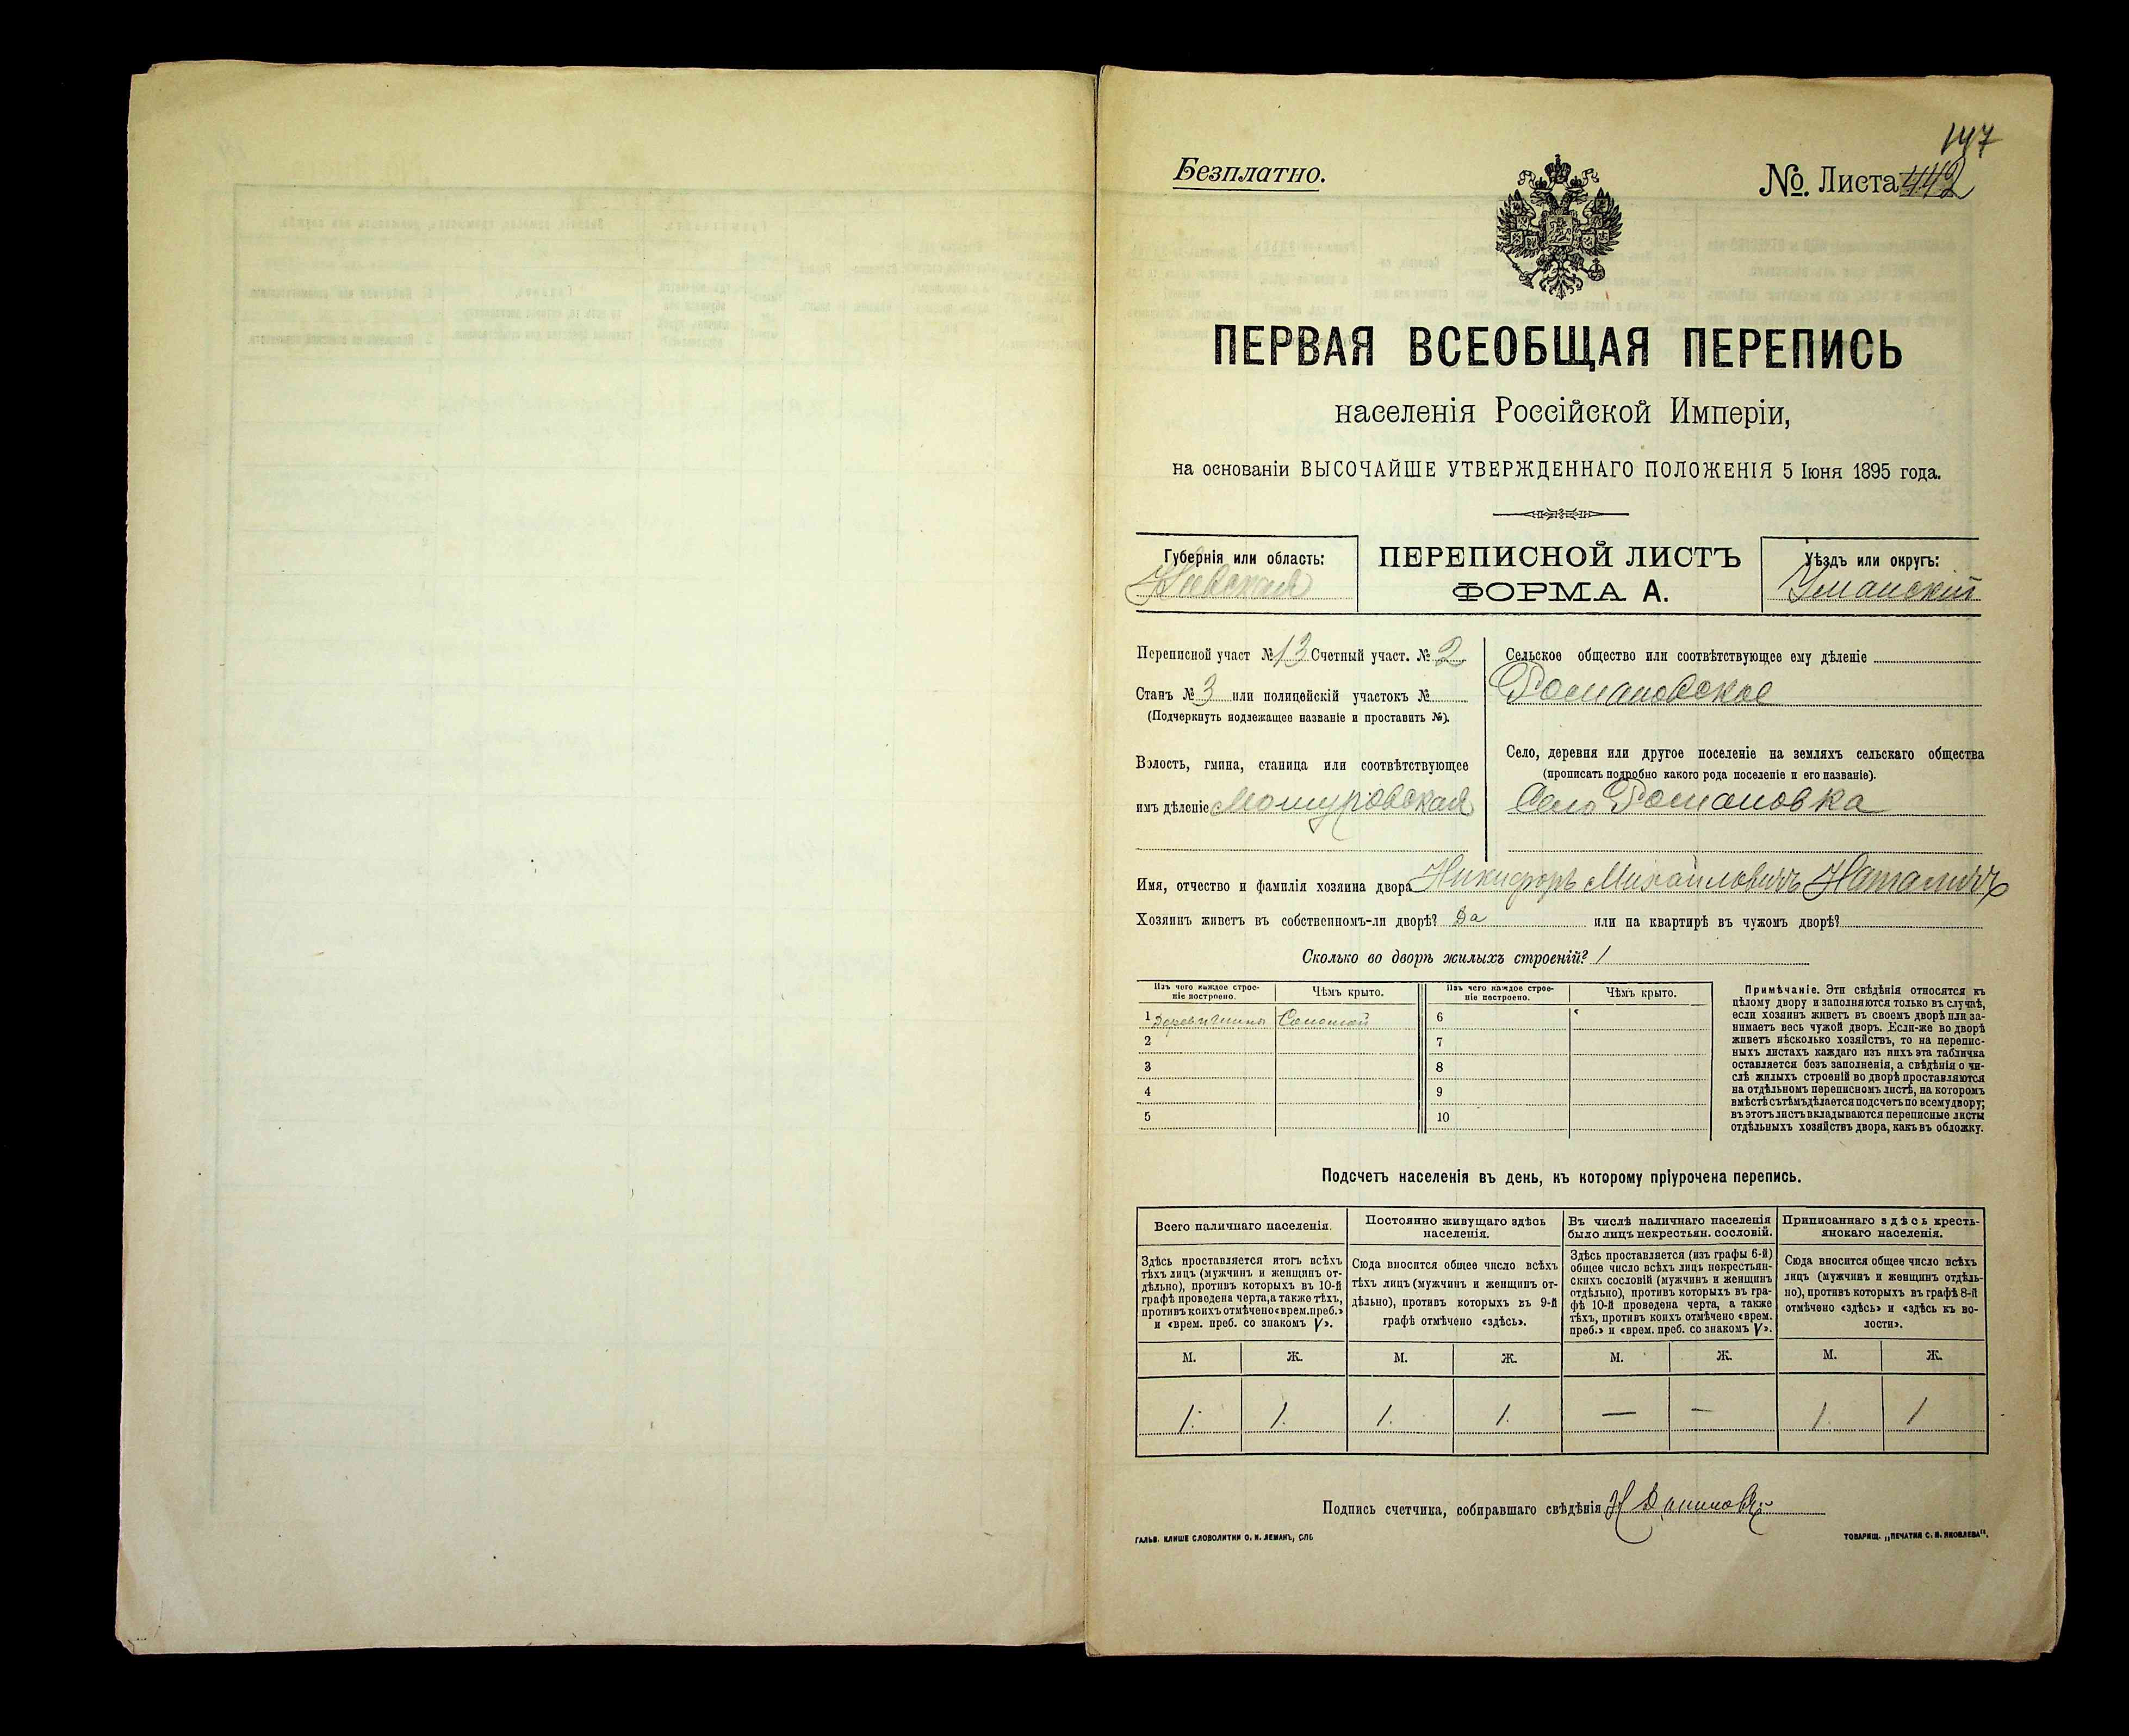 147
Безплатно.
№. Листа 442
ПЕРВАЯ ВСЕОБЩАЯ ПЕРЕПИСЬ
населенія Россійской Имперіи,
на основаніи ВЫСОЧАЙШЕ УТВЕРЖДЕННАГО ПОЛОЖЕНІЯ 5 Іюня 1895 года.
Губернія или область:
Кіевская
ПЕРЕПИСНОЙ ЛИСТЪ
ФОРМА А.
Уѣздъ или округъ:
Уманскій
Переписной участ № 13 Счетный участ. № 2
Станъ № 3 или полицейскій участокъ №
(Подчеркнуть подлежащее названіе и проставить №).
Волость, гмина, станица или соотвѣтствующее
имъ дѣленіе Мошуровская
Сельское общество или соотвѣтствующее ему дѣленіе
Романовское
Село, деревня или другое поселеніе на земляхъ сельскаго общества
(прописать подробно какого рода поселеніе и его названіе).
Село Романовка
Имя, отчество и фамилія хозяина двора Никифоръ Михайловичъ
Хозяинъ живетъ въ собственномъ-ли дворѣ? Да или на квартирѣ въ чужомъ дворѣ?
Сколько во дворѣ жилыхъ строеній? 1
Изъ чего каждое строе-
ніе построено.
Чѣмъ крыто.
1 Соломой
2
3
4
5
Изъ чего каждое строе-
ніе построено.
Чѣмъ крыто.
6
7
8
9
10
Примѣчаніе. Эти свѣдѣнія относятся къ
цѣлому двору и заполняются только въ случаѣ,
если хозяинъ живетъ въ своемъ дворѣ или за-
нимаетъ весь чужой дворъ. Если-же во дворѣ
живетъ нѣсколько хозяйствъ, то на перепис-
ныхъ листахъ каждаго изъ нихъ эта табличка
оставляется безъ заполненія, а свѣдѣнія о чи-
слѣ жилыхъ строеній во дворѣ проставляются
на отдѣльномъ переписномъ листѣ, на которомъ
вмѣстѣ съ тѣмъ дѣлается подсчетъ по всему двору;
въ этотъ листъ вкладываются переписные листы
отдѣльныхъ хозяйствъ двора, какъ въ обложку.
Подсчетъ населенія въ день, къ которому пріурочена перепись.
Всего наличнаго населенія.
Здѣсь проставляется итогъ всѣхъ
тѣхъ лицъ (мужчинъ и женщинъ от-
дѣльно), противъ которыхъ въ 10-й
графѣ проведена черта, а также тѣхъ,
противъ коихъ отмѣчено «врем. преб.»
и «врем. преб. со знакомъ V».
М. Ж.
1. 1.
Постоянно живущаго здѣсь
населенія.
Сюда вносится общее число всѣхъ
тѣхъ лицъ (мужчинъ и женщинъ от-
дѣльно), противъ которыхъ въ 9-й
графѣ отмѣчено «здѣсь».
М. Ж.
1. 1.
Въ числѣ наличнаго населенія
было лицъ некрестьян. сословій.
Здѣсь проставляется (изъ графы 6-й)
общее число всѣхъ лицъ некрестьян-
скихъ сословій (мужчинъ и женщинъ
отдѣльно), противъ которыхъ въ гра-
фѣ 10-й проведена черта, а также
тѣхъ, противъ коихъ отмѣчено «врем.
преб.» и «врем. преб. со знакомъ V».
М. Ж.
— —
Приписаннаго здѣсь кресть-
янскаго населенія.
Сюда вносится общее число всѣхъ
лицъ (мужчинъ и женщинъ отдѣль-
но), противъ которыхъ въ графѣ 8-й
отмѣчено «здѣсь» и «здѣсь въ во-
лости».
М. Ж.
1. 1
Подпись счетчика, собиравшаго свѣдѣнія
ГАЛЬВ. КЛИШЕ СЛОВОЛИТНИ О. И. ЛЕМАНЪ, СПБ
ТОВАРИЩ. „ПЕЧАТНЯ С. П. ЯКОВЛЕВА".